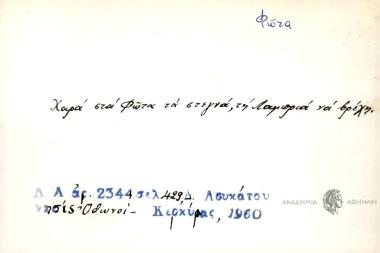 Φῶτα
Χαρά στά Φῶτα τά στεγνά, τή Λαμπριά νά βρέχη.
Λ Α ἀρ. 2344 σελ. 429, Δ. Λουκάτου
νησίς Ὀθωνοί - Κερκύρας, 1960
ΑΚΑΔΗΜΙΑ ΑΘΗΝΩΝ